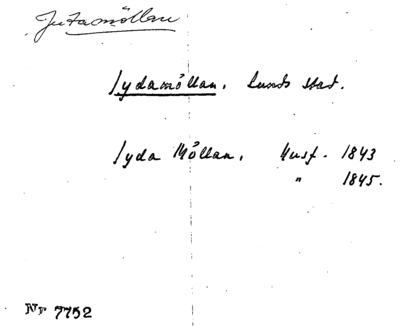 Jutamöllan
Sydamöllan. Lunds stad.
Syda Möllan. Husf. 1843
" 1845.
Nr 7752